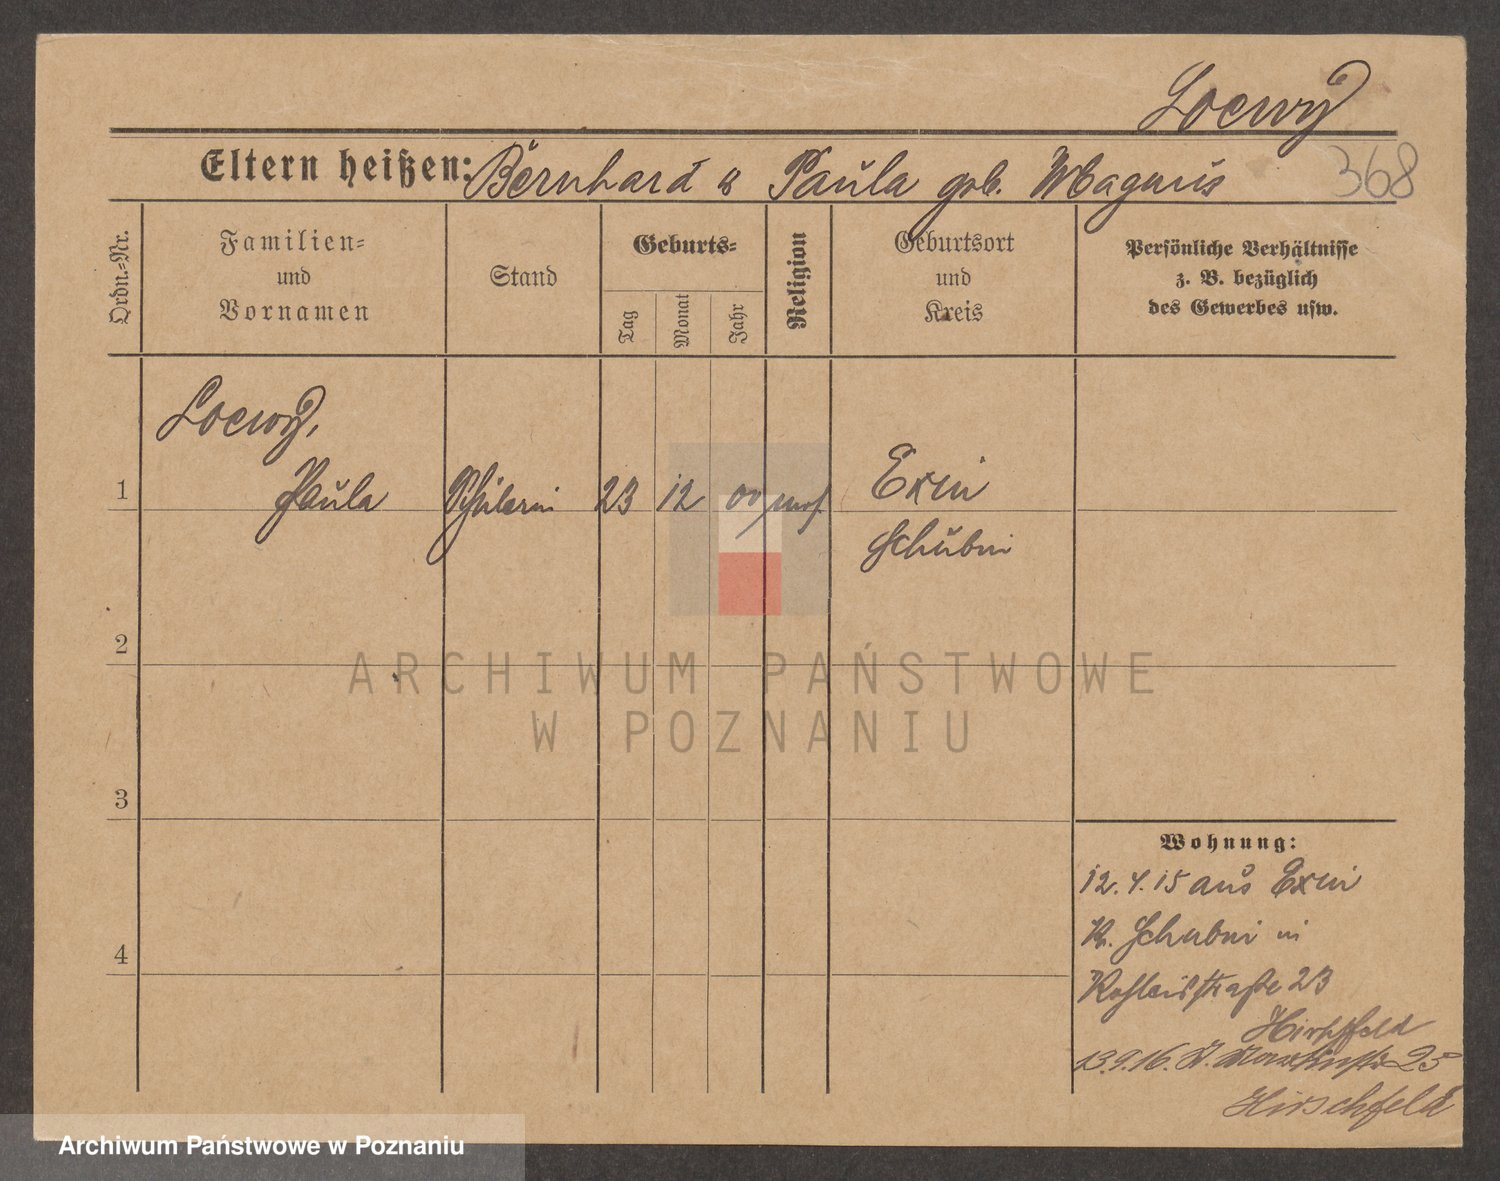 Loewy
Eltern heißen: Bernhard u Paula geb. Magnus
368
Ordn.-Nr.
Familien-
und
Vornamen
Stand
Geburts-
Tag
Monat
Jahr
Religion
Geburtsort
und
Kreis
Persönliche Verhältnisse
z. B. bezüglich
des Gewerbes usw.
Loewy,
1 Paula Schülerin 23 12 00 mos. Exin
Schubin
2
ARCHIWUM PAŃSTWOWE
W POZNANIU
3
Wohnung:
12.4.15 aus Exin
Kr. Schubin in
4
Kohleisstraße 23
Hirschfeld
13.9.16. 25
Hirschfeld
Archiwum Państwowe w Poznaniu